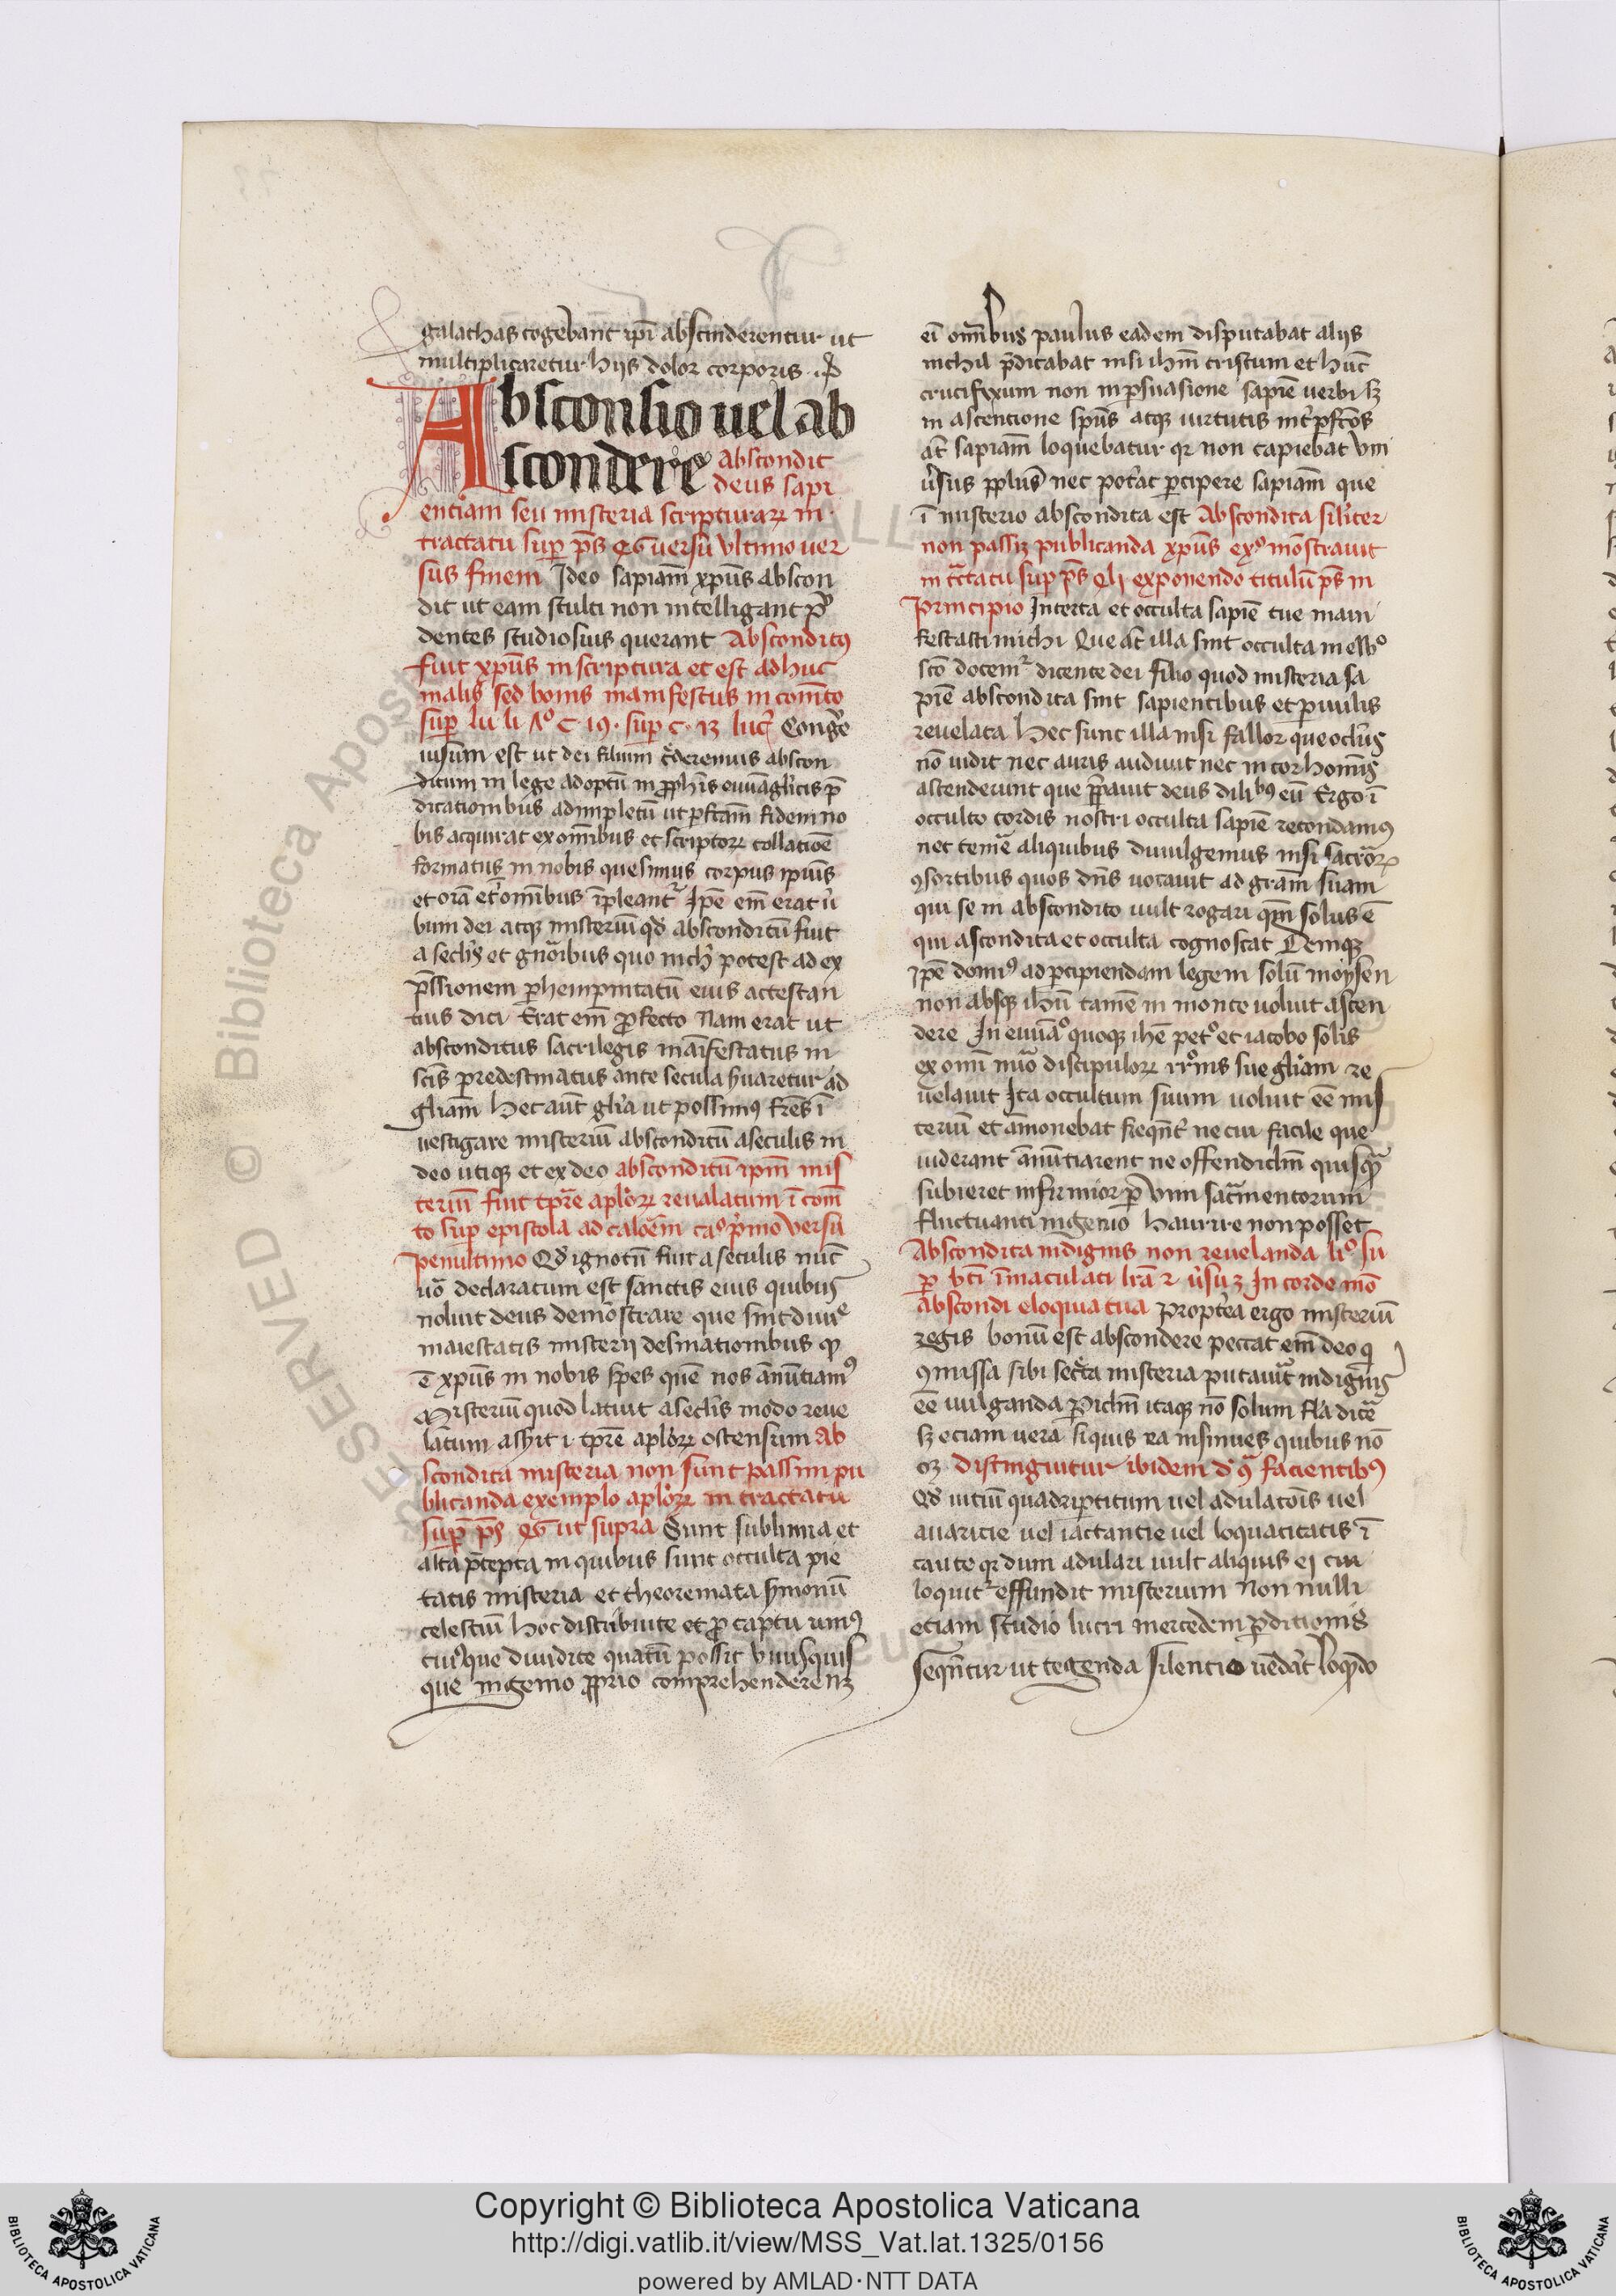 galathas cogebant ip̄i abscinderentur ut
multiplicaretur hijs dolor corporis
Absconsio uel ab
scondere abscondit
deus sapi
entiam seu misteria scripturaꝝ in
tractatu sup̄ ps̄ uersu ultimo uer
sus finem Ideo sapiam̄ xp̄us abscon
dit ut eam stulti non intelligant
dentes studiosius querant Absconditꝰ
fuit xp̄us in scriptura et est adhuc
malis sed bonis manifestus in com̄to
sup̄ lu li C 19 sup̄ c
iusum est ut dei filium c̄deremus abscon
ditum in lege adoptū in pphīs euuāglicis p̄
dicationibus adimpletū ut pfctam̄ fidem no
bis acquirat ex om̄ibus et scriptoꝝ collatioē
formatus in nobis quesimus corpus ipius
et ora et om̄ibus īpleant̄ Ipē em̄ erat ū
bum dei atqꝫ misteriū qd̄ absconditū fuit
a sec̄lis et gn̄acōibus quo nich̄ potest ad ex
p̄ssionem phempnitatū eius attestan
tius dici Erat em̄ pfecto Nam erat ut
absconditus sacrilegis māifestatus in
sc̄is predestinatus ante secula suaretur ad
gliam hec aut̄ gl̄ia ut possimꝰ fr̄es ī
uestigare misteriū absconditū aseculis in
deo utiqꝫ et ex deo absconditū ipm̄ mis
teriū fuit tpr̄e aploꝝ reualatum ī com̄
to sup̄ epistola ad caloc̄em caᵒ p̄mo uersu
penultimo Qd̄ ignotū fuit a seculis nūc
uō declaratum est sanctis eius quibus
uoluit deus demōstrare que sint diuie
maiestatis misterij destinationibus
ē xp̄us in nobis spes quē nos anūtiamꝰ
Misteriū quod latuit a sec̄lis modo reue
latum assit i tpr̄e aploꝝ ostensum Ab
scondita misteria non sunt passim pu
blicanda exemplo aploꝝ in tractatu
sup̄ ps̄ ut supra Sunt sublimia et
alta p̄cepta in quibus sunt occulta pie
tatis misteria et theoremata s̄monū
celestiū hoc distribuite et p captu uniꝰ
cuiꝰque diuidite quatū possit unusquis
que ingenio pprio comprehendere
eī om̄ibus paulus eadem disputabat alijs
nichil p̄dicabat nisi ihm̄ cristum et hūc
crucifixum non in psuasione sapiē uerbi sꝫ
in ascencione sp̄us atqꝫ uirtutis int̄ pfctōs
aūt sapiam̄ loquebatur qꝛ non capiebat uni
ūsus pplus nec pot̄at pcipere sapiam̄ que
ī misterio abscondita est Abscondita silīter
non passiꝫ publicanda xp̄us exᵒ mōstrauit
in tc̄tatu sup ps̄ exponendo titulū ps̄ in
principio Incerta et occulta sapiē tue mani
festasti michi Que aūt illa sint occulta in
scō docemꝛ dicente dei filio quod misteria sa
piē abscondita sint sapientibus et puulis
reuelata Hec sunt illa nisi fallor que oclūs
nō uidit nec auris audiuit nec in cor homīs
ascenderunt que p̄pauit deus dilībꝰ eū Ergo ī
occulto cordis nostri occulta sapiē recondamꝰ
nec temē aliquibus diuulgemus nisi sacroꝝ
ꝯsortibus quos dn̄s uocauit ad gram̄ suam
qui se in abscondito uult rogari qm̄ solus ē
qui ascondita et occulta cognoscat Deniqꝫ
ipē domiꝰ ad pcipiendam legem solū moysen
non absqꝫ ihū tamē in monte uoluit ascen
dere In euuāᵒ quoqꝫ ihē petᵒ et iacobo solis
ex omī nūo discipuloꝝ suē gliam re
uelauit Ita occultum suum uoluit eē mis
teriū et amonebat freqn̄t̄ ne cui facile que
uiderant anūtiarent ne offendiclm̄ quisq̄
subieret infirmior p uim sacramentorum
fluctuanti ingenio haurire non posset
Abscondita indignis non reuelanda liᵒ su
p bt̄i īmaculati lr̄a 2 ūsu 3 In corde mō
abscondi eloquia tua propt̄ea ergo misteriū
regis bonū est abscondere peccat em̄ deo q
ꝯmissa sibi sec̄ta misteria putauīt indignis
eē uulganda Piclm̄ itaqꝫ nō solum fl̄a dic̄e
sꝫ eciam uera siquis ea insinues quibus nō
oꝫ distinguitur ibidem d̄ facientibꝰ
Qd̄ uitiū quadriptitum uel adulatōis uel
auaricie uel iactantie uel loquacitatis ī
caute qꝛ dum adulari uult aliquis ej cui
loquitꝛ effundit misterium Non nulli
etiam studio lucri mercedem pditionis
seqn̄tur ut tegenda silentio uēdāt loq̄ndo
Copyright © Biblioteca Apostolica Vaticana
http://digi.vatlib.it/view/MSS_Vat.lat.1325/0156
powered by AMLAD·NTT DATA
BIBLIOTECA APOSTOLICA VATICANA
BIBLIOTECA APOSTOLICA VATICANA